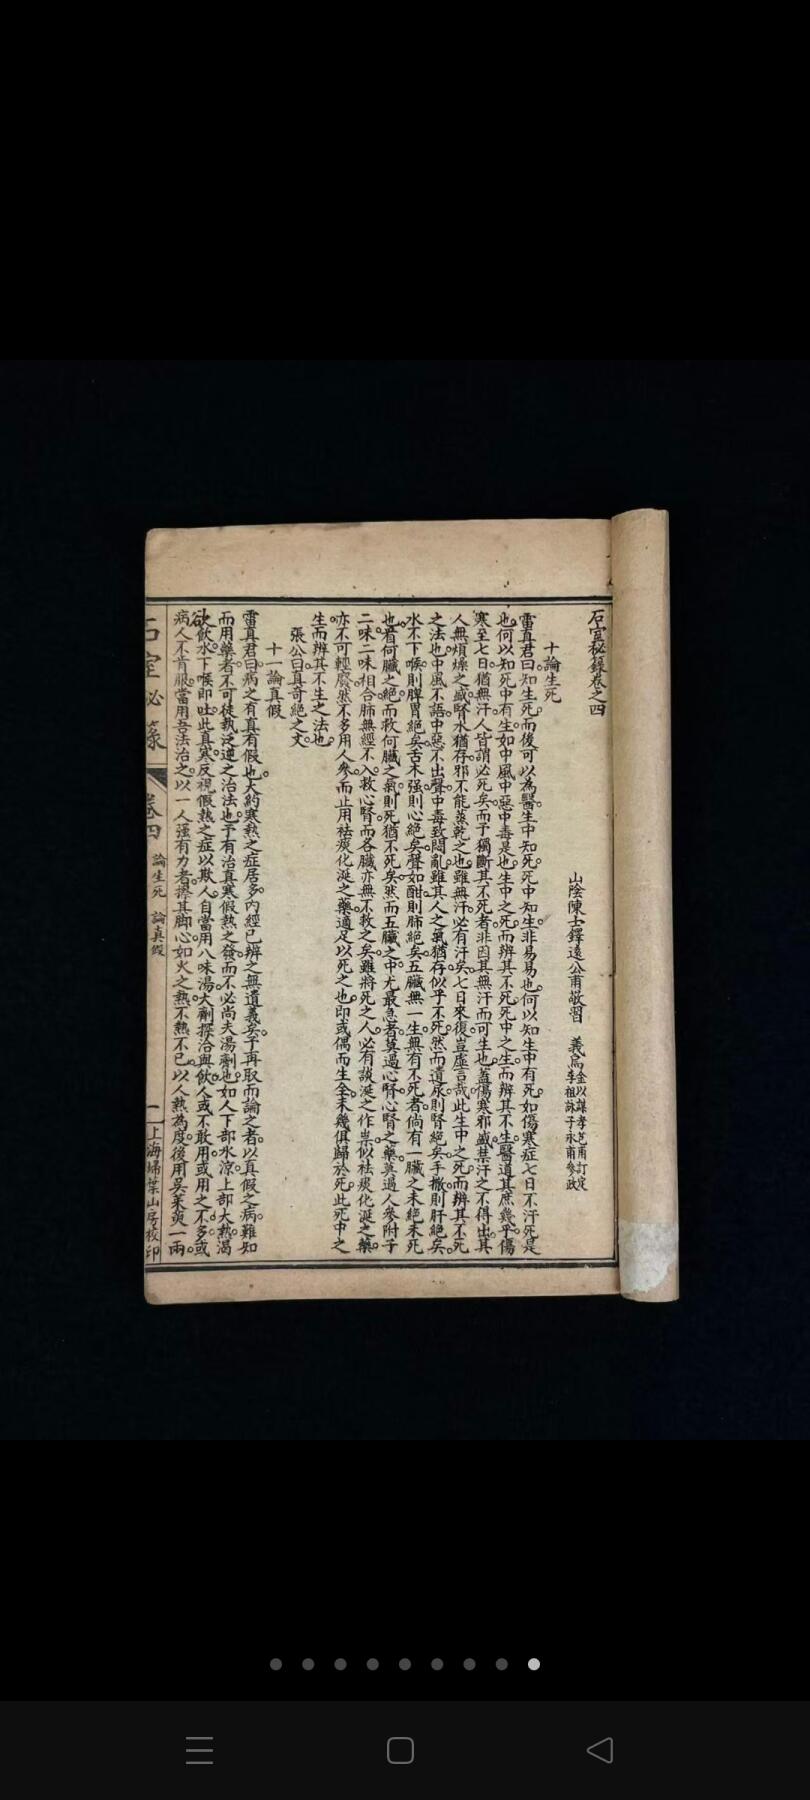 石室秘錄卷之四
山陰陳士鐸遠公甫敬習 義烏金以謀孝芑甫訂定 李祖詠子永甫參政
十論生死
雷真君曰知生死而後可以為醫生中知死死中知生非易易也何以知生中有死如傷寒症七日不汗死是
也何以知死中有生如中風中惡中毒是也生中之死而辨其不死死中之生而辨其不生醫道其庶幾乎傷
寒至七日猶無汗人皆謂必死矣而予獨斷其不死者非因其無汗而可生也蓋傷寒邪盛禁汗之不得出其
人無煩燥之盛腎水猶存邪不能蒸乾之也雖無汗必有汗矣七日來復豈虛言哉此生中之死而辨其不死
之法也中風不語中惡不出聲中毒致悶亂雖其人之氣猶存似乎不死然而遺尿則腎絕矣手撒則肝絕矣
水不下喉則脾胃絕矣舌木強則心絕矣聲如酣則肺絕矣五臟無一生無有不死者倘有一臟之未絕未死
也看何臟之絕而救何臟之氣則死猶不死矣然而五臟之中尤最急者莫過心腎心腎之藥莫過人參附子
二味二味相合肺無經不入救心腎而各臟亦無不救之矣雖將死之人必有談涎之作祟似祛痰化涎之藥
亦不可輕廢然不多用人參而止用祛痰化涎之藥適足以死之也即或偶而生全未幾俱歸於死此死中之
生而辨其不生之法也
張公曰真奇絕之文
十一論真假
雷真君曰病之有真有假也大約寒熱之症居多內經已辨之無遺義矣予再取而論之者以真假之病難知
而用藥者不可徒執泛逆之治法也予有治真寒假熱之發而不必尚夫湯劑也如人下部冰涼上部大熱渴
欲飲水下喉即吐此真寒反視假熱之症以欺人自當用八味湯大劑探冶與飲人或不敢用或用之不多或
病人不肯服當用吾法治之以一人強有力者擦其脚心如火之熱不熱不已以人熱為度後用吳茱萸一兩
石室秘錄 卷四 論生死 論真假 一 上海埽葉山房校印